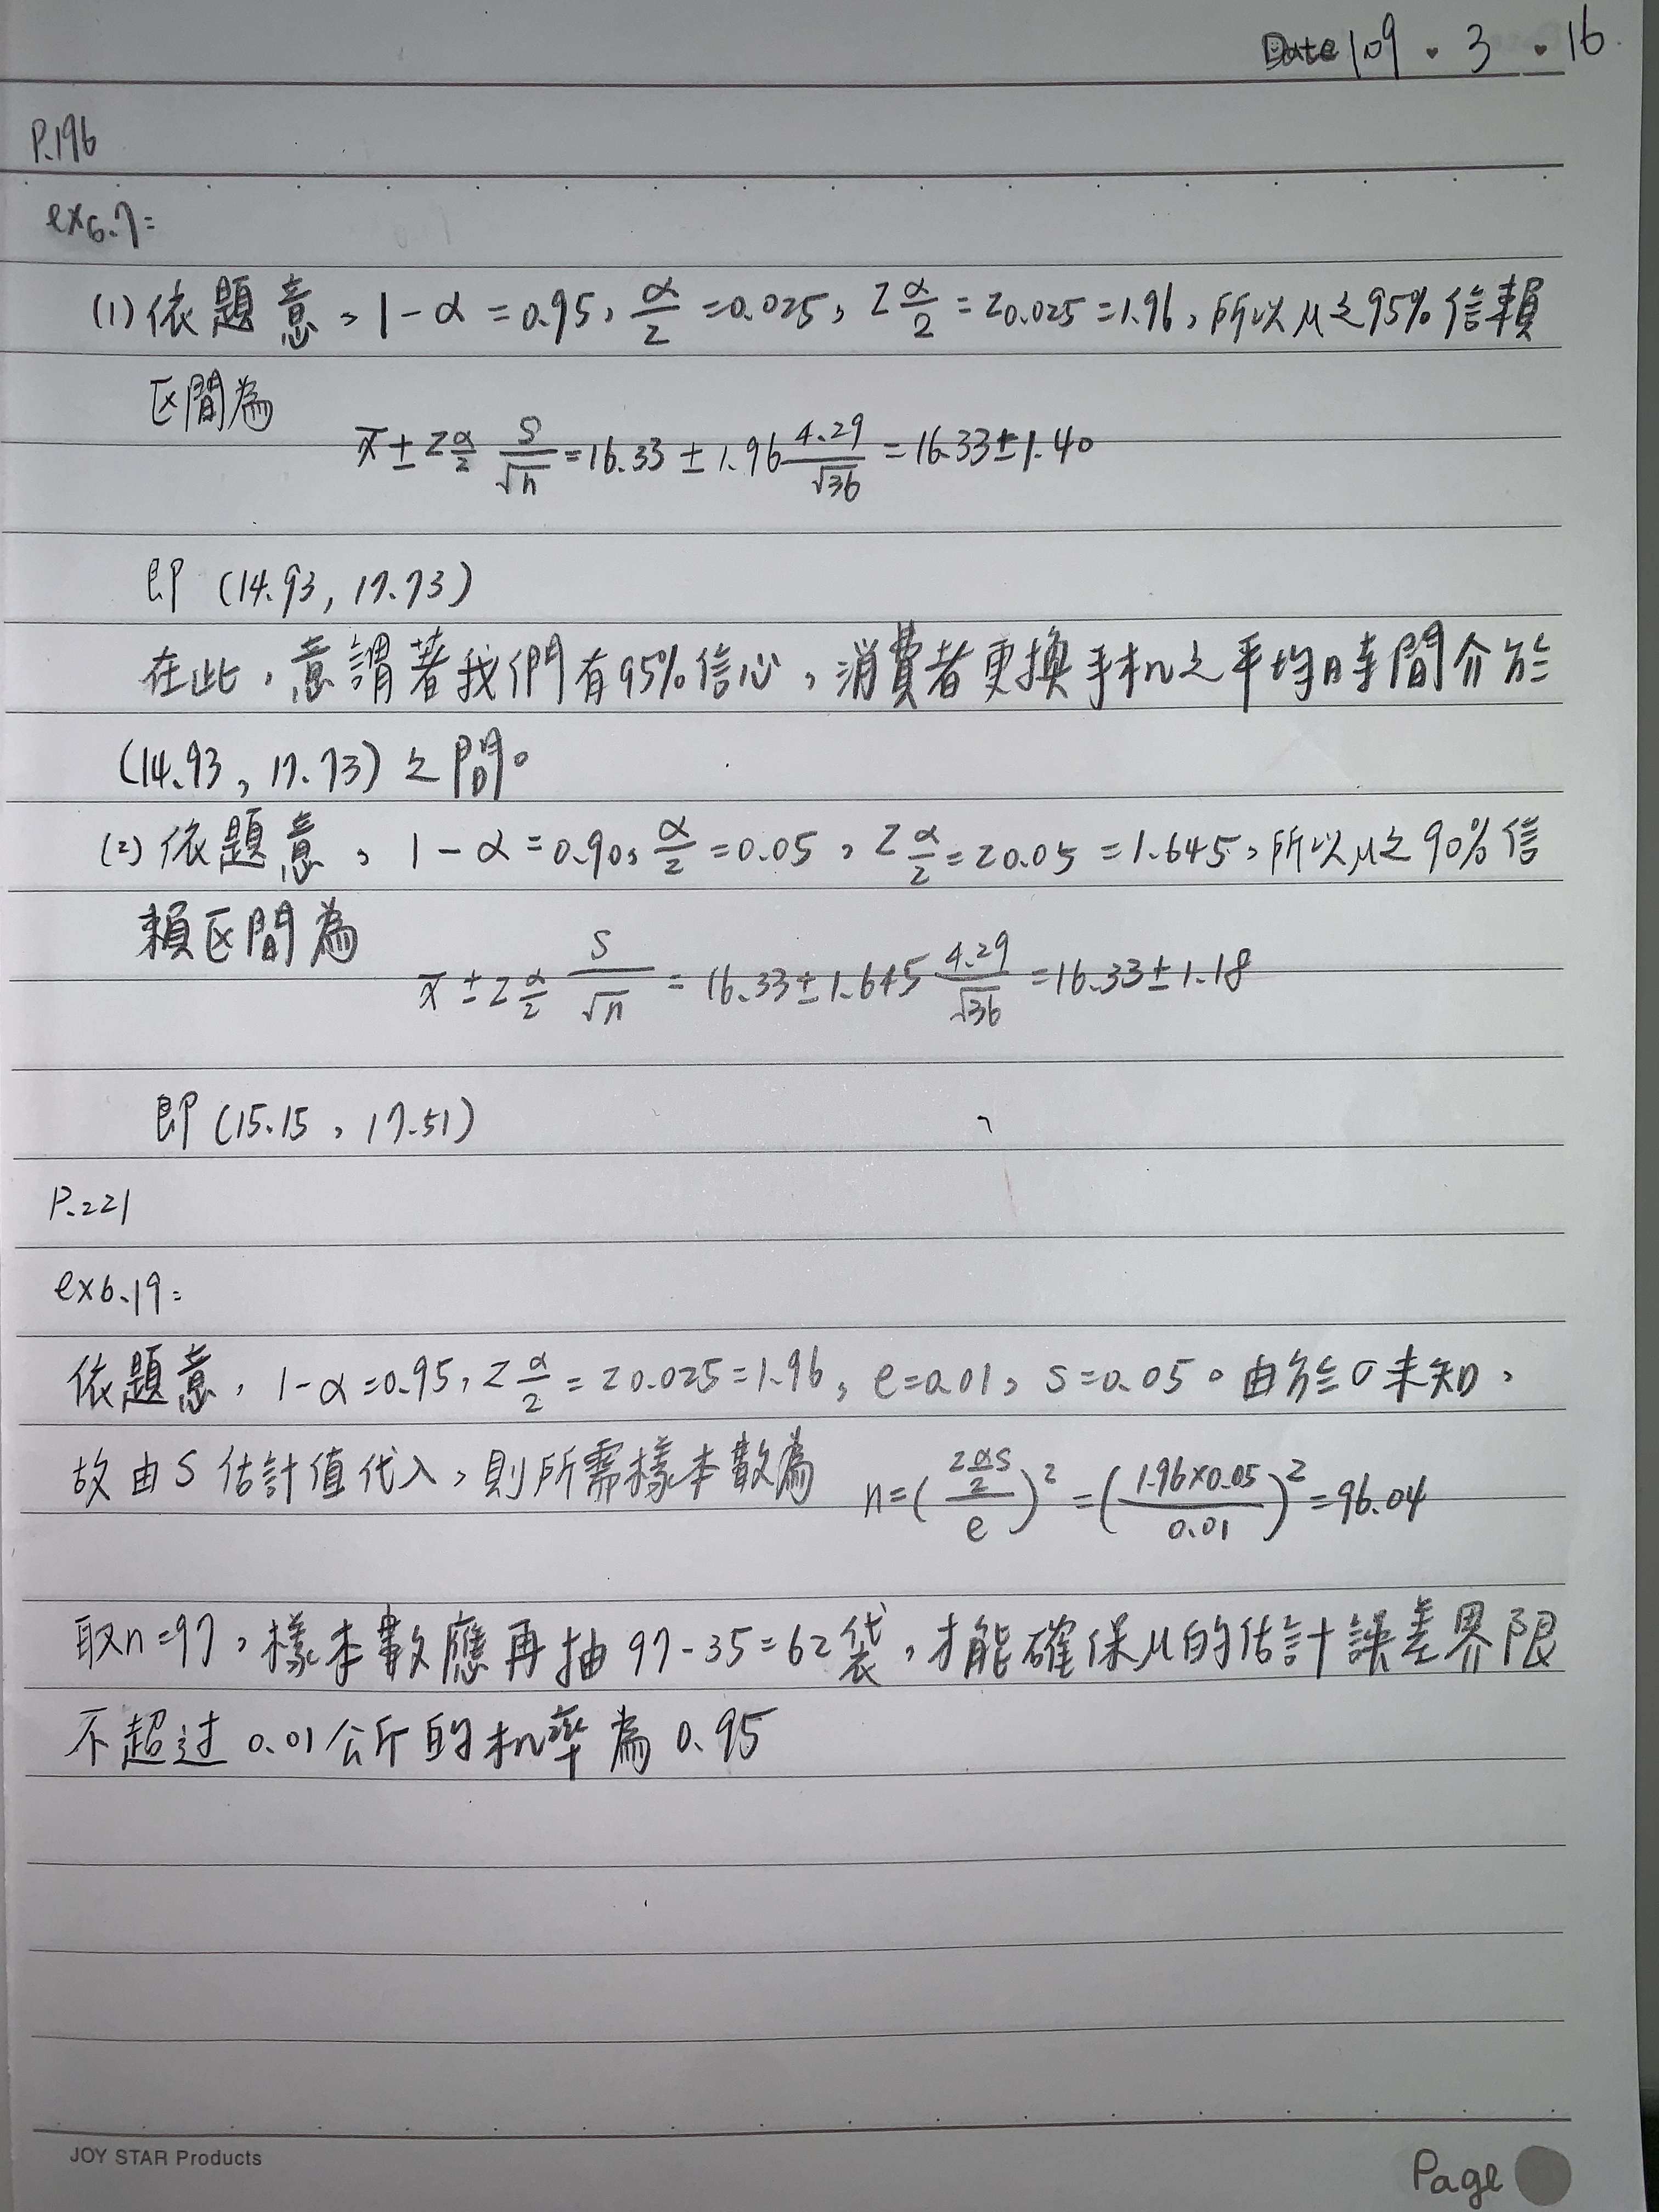 Date 109 . 3 . 16
P.196
ex6.7:
(1) 依題意，1-α=0.95，α/2=0.025，Zα/2=Z0.025=1.96，所以μ之95%信賴
区間為
x̄±Zα/2 S/√n=16.33±1.96 4.29/√36=16.33±1.40
即 (14.93, 17.73)
在此，意謂著我們有95%信心，消費者更換手机之平均時間介於
(14.93, 17.73) 之間。
(2) 依題意，1-α=0.90，α/2=0.05，Zα/2=Z0.05=1.645，所以μ之90%信
賴区間為
x̄±Zα/2 S/√n=16.33±1.645 4.29/√36=16.33±1.18
即 (15.15, 17.51)
P.221
ex6.19:
依題意，1-α=0.95，Zα/2=Z0.025=1.96，e=0.01，S=0.05。由於σ未知，
故由S估計值代入，則所需樣本數為 n=(Zα/2S/e)²=(1.96×0.05/0.01)²=96.04
取n=97，樣本數應再抽97-35=62袋，才能確保μ的估計誤差界限
不超过0.01公斤的机率為0.95
JOY STAR Products
Page